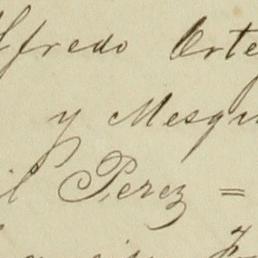 Alfredo Orte
y Mesqu
il Perez =